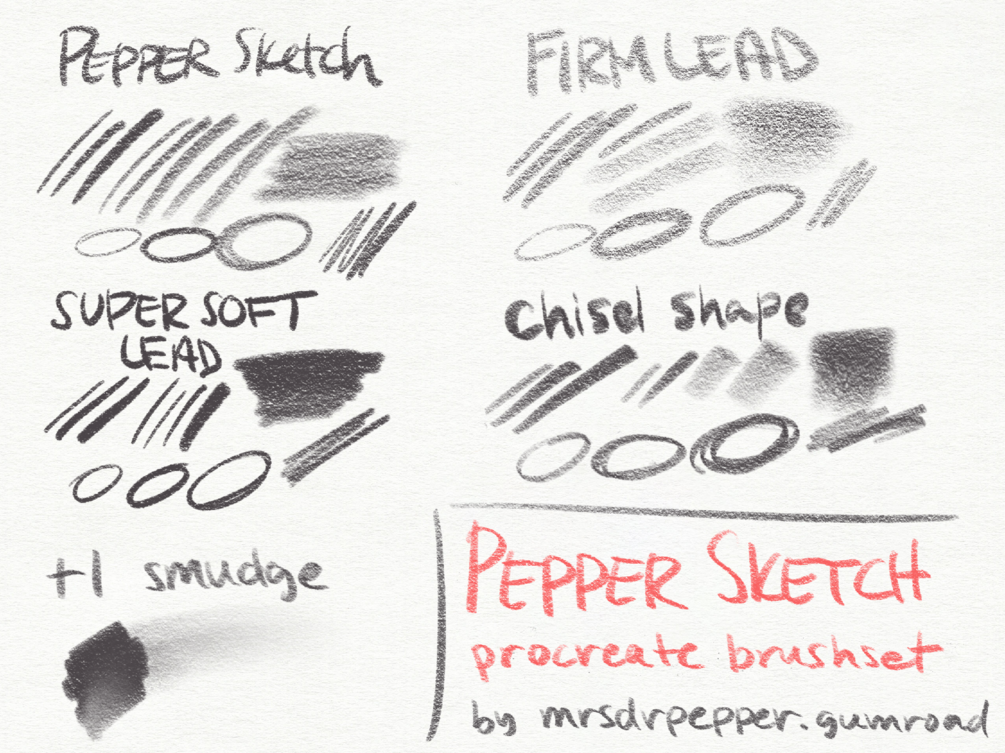 PEPPER Sketch
FIRM LEAD
SUPER SOFT
LEAD
chisel shape
+1 smudge
PEPPER SKETCH
procreate brushset
by mrsdrpepper.gumroad